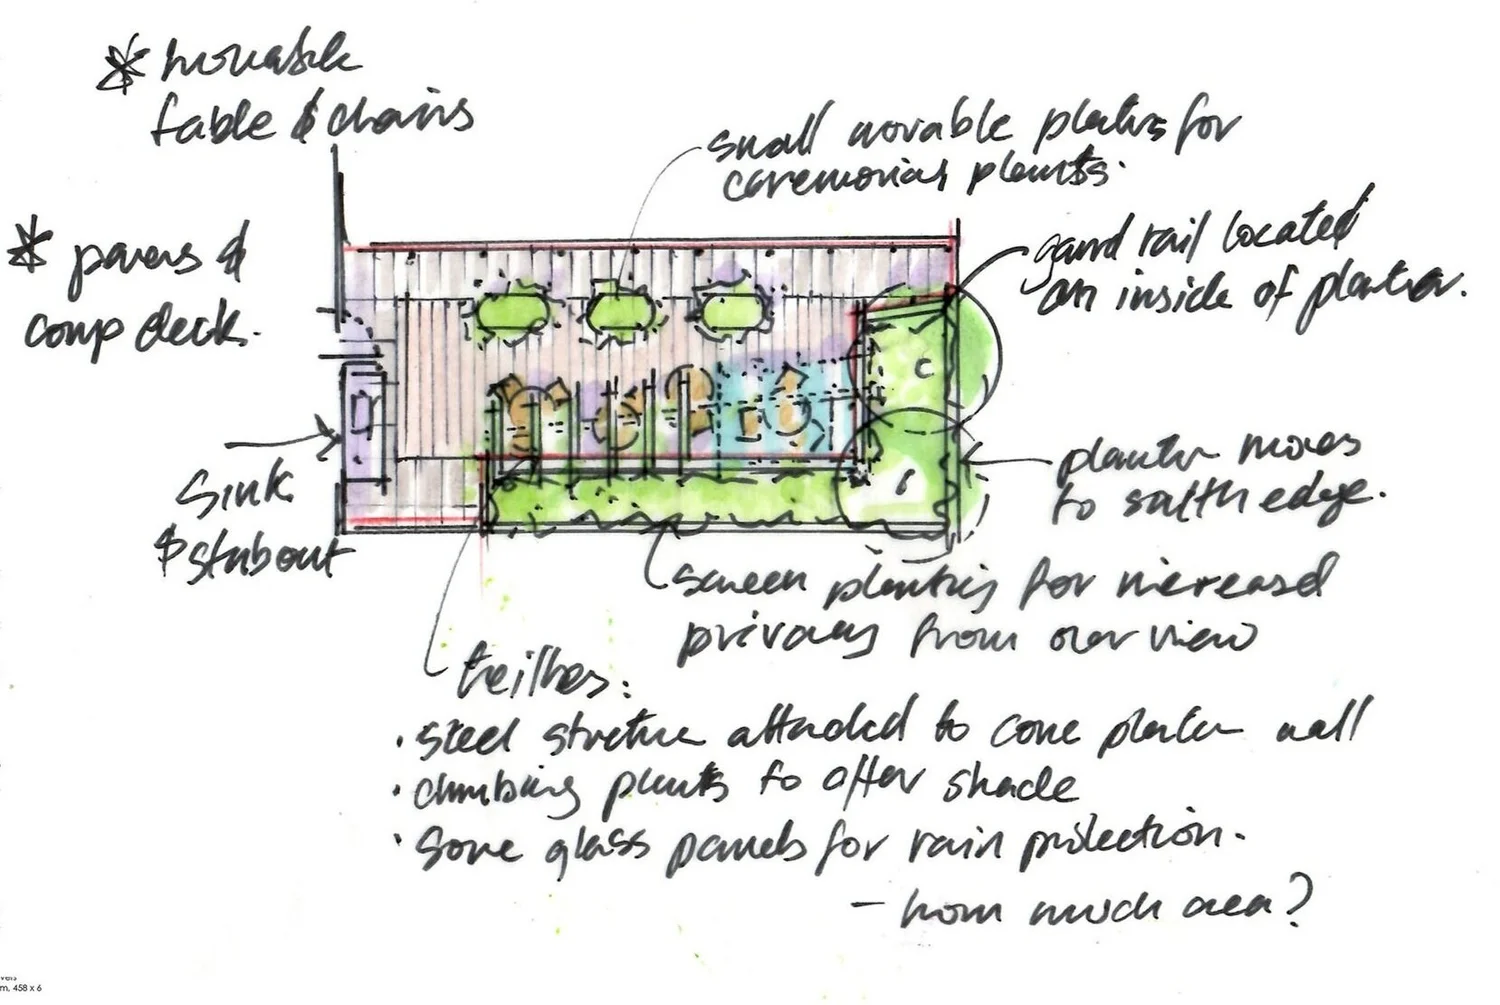 * movable
table & chairs
small movable planters for
ceremonial plants.
* pavers &
comp deck.
guard rail located
on inside of planter.
C
Sink
& stubout
planter moves
to south edge.
screen planting for increased
privacy from over view
trellises:
· steel structure attached to conc planter wall
· climbing plants to offer shade
· some glass panels for rain protection.
- how much area?
m, 458 x 6